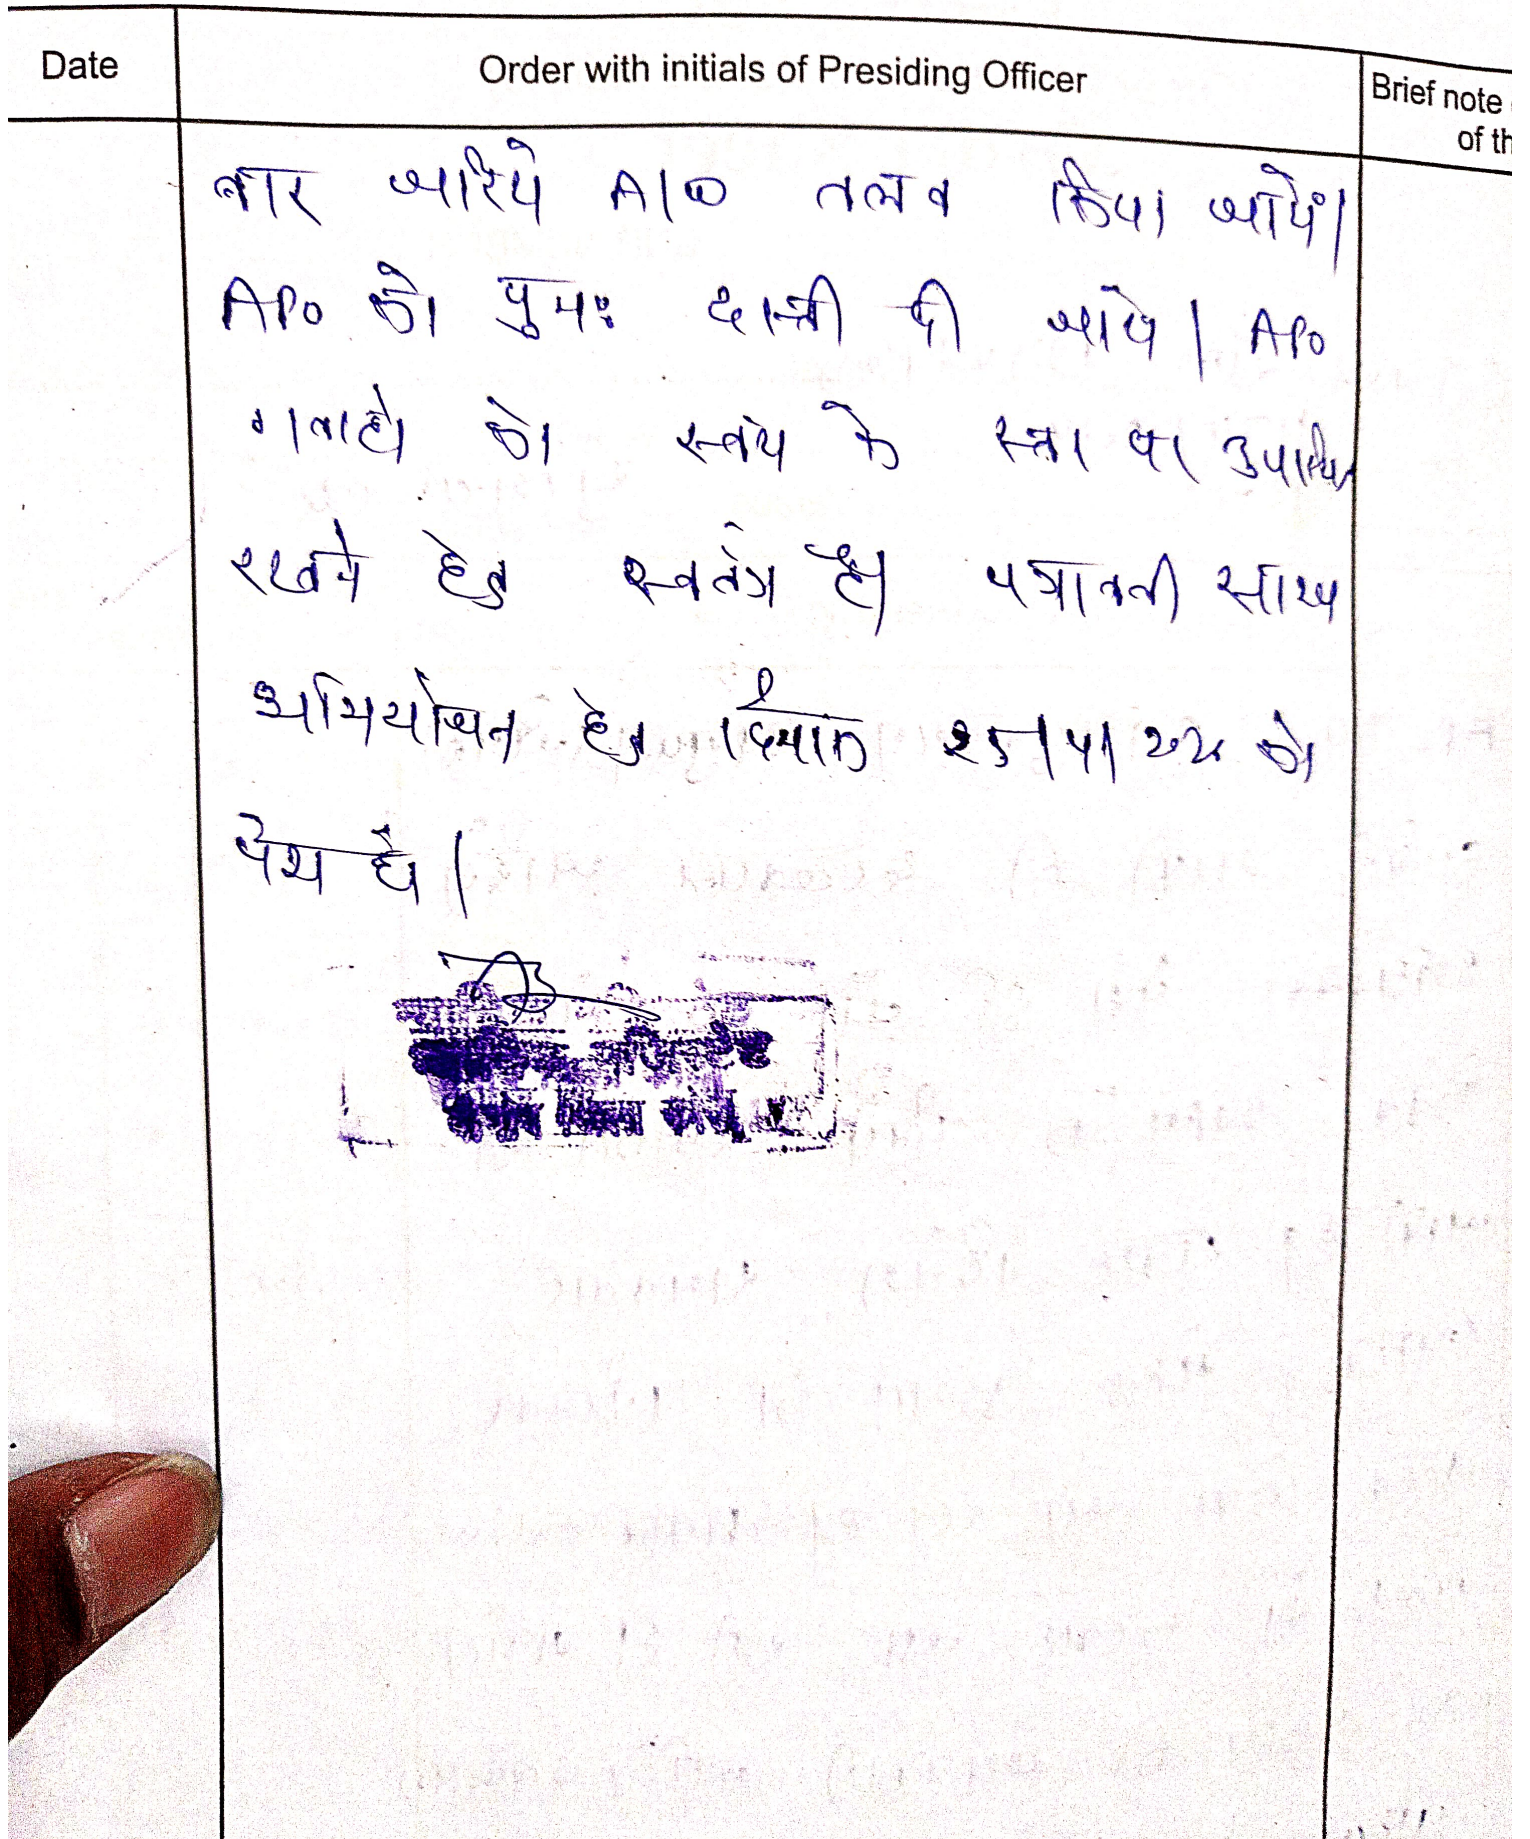 Date Order with initials of Presiding Officer Brief note
of th
बार जरिये A/W तलब किया जाये।
APO को पुनः दस्ती दी जाये। APO
गवाहो को स्वंय के स्तर पर उपस्थित
रखने हेतु स्वतंत्र है। पत्रावली साक्ष्य
अभियोजन हेतु दिनांक को
पेश हो।